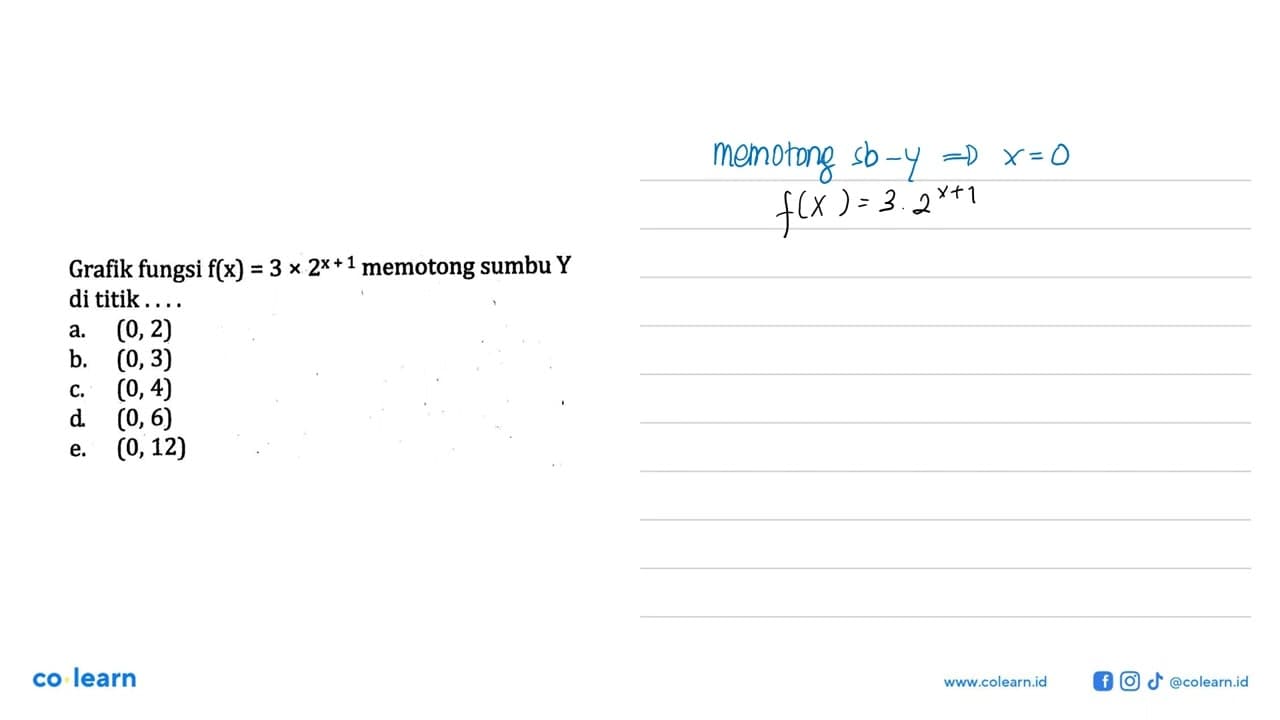 memotong sb-y => x=0
f(x) = 3.2^x+1
Grafik fungsi f(x) = 3 × 2^x+1 memotong sumbu Y
di titik . . . .
a. (0, 2)
b. (0, 3)
c. (0, 4)
d. (0, 6)
e. (0, 12)
co learn
www.colearn.id
@colearn.id